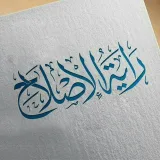 راية الإصلاح